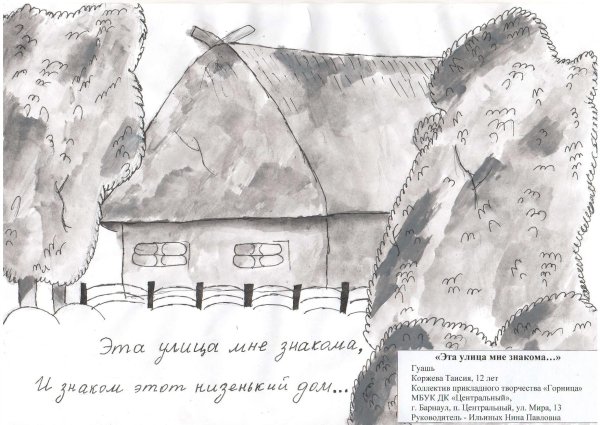 Эта улица мне знакома,
И знаком этот низенький дом...
«Эта улица мне знакома…»
Гуашь
Коржева Таисия, 12 лет
Коллектив прикладного творчества «Горница»
МБУК ДК «Центральный»,
г. Барнаул, п. Центральный, ул. Мира, 13
Руководитель - Ильиных Нина Павловна